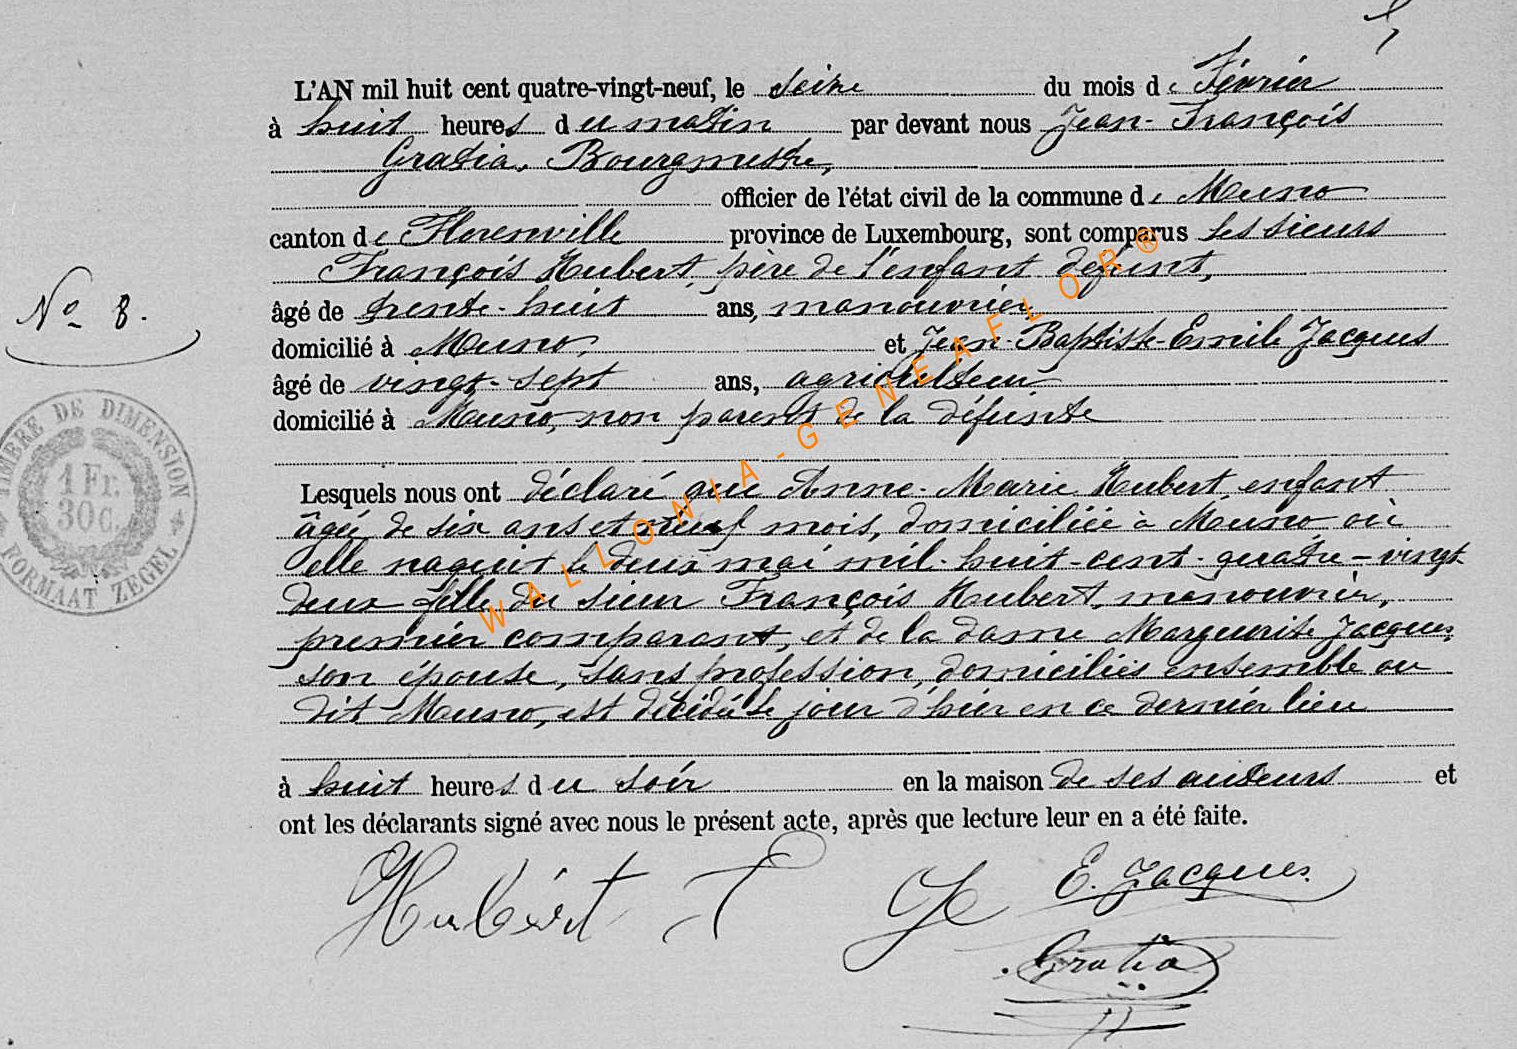 L'AN mil huit cent quatre-vingt-neuf, le seize du mois de Février
à huit heures du matin par devant nous Jean-François
Gratia, Bourgmestre,
officier de l'état civil de la commune de Muno
canton de Florenville province de Luxembourg, sont comparus les sieurs
François Hubert, père de l'enfant défunt,
âgé de trente-huit ans, manouvrier,
domicilié à Muno, et Jean-Baptiste-Emile Jacques
âgé de vingt-sept ans, agriculteur
domicilié à Muno, non parent de la défunte
Lesquels nous ont déclaré que Anne-Marie Hubert, enfant
âgée de six ans et neuf mois, domiciliée à Muno où
elle naquit le deux mai mil-huit-cent-quatre-vingt
deux fille du sieur François Hubert, manouvrier,
premier comparant, et de la dame Marguerite Jacques,
son épouse, sans profession, domiciliés ensemble au
dit Muno, est décédée le jour d'hier en ce dernier lieu
à huit heures du soir en la maison de ses auteurs et
ont les déclarants signé avec nous le présent acte, après que lecture leur en a été faite.
No 8.
TIMBRE DE DIMENSION
1 Fr.
30 C.
FORMAAT ZEGEL
WALLONIA-GENEAFLOR®
Hubert F
E. Jacques
Gratia